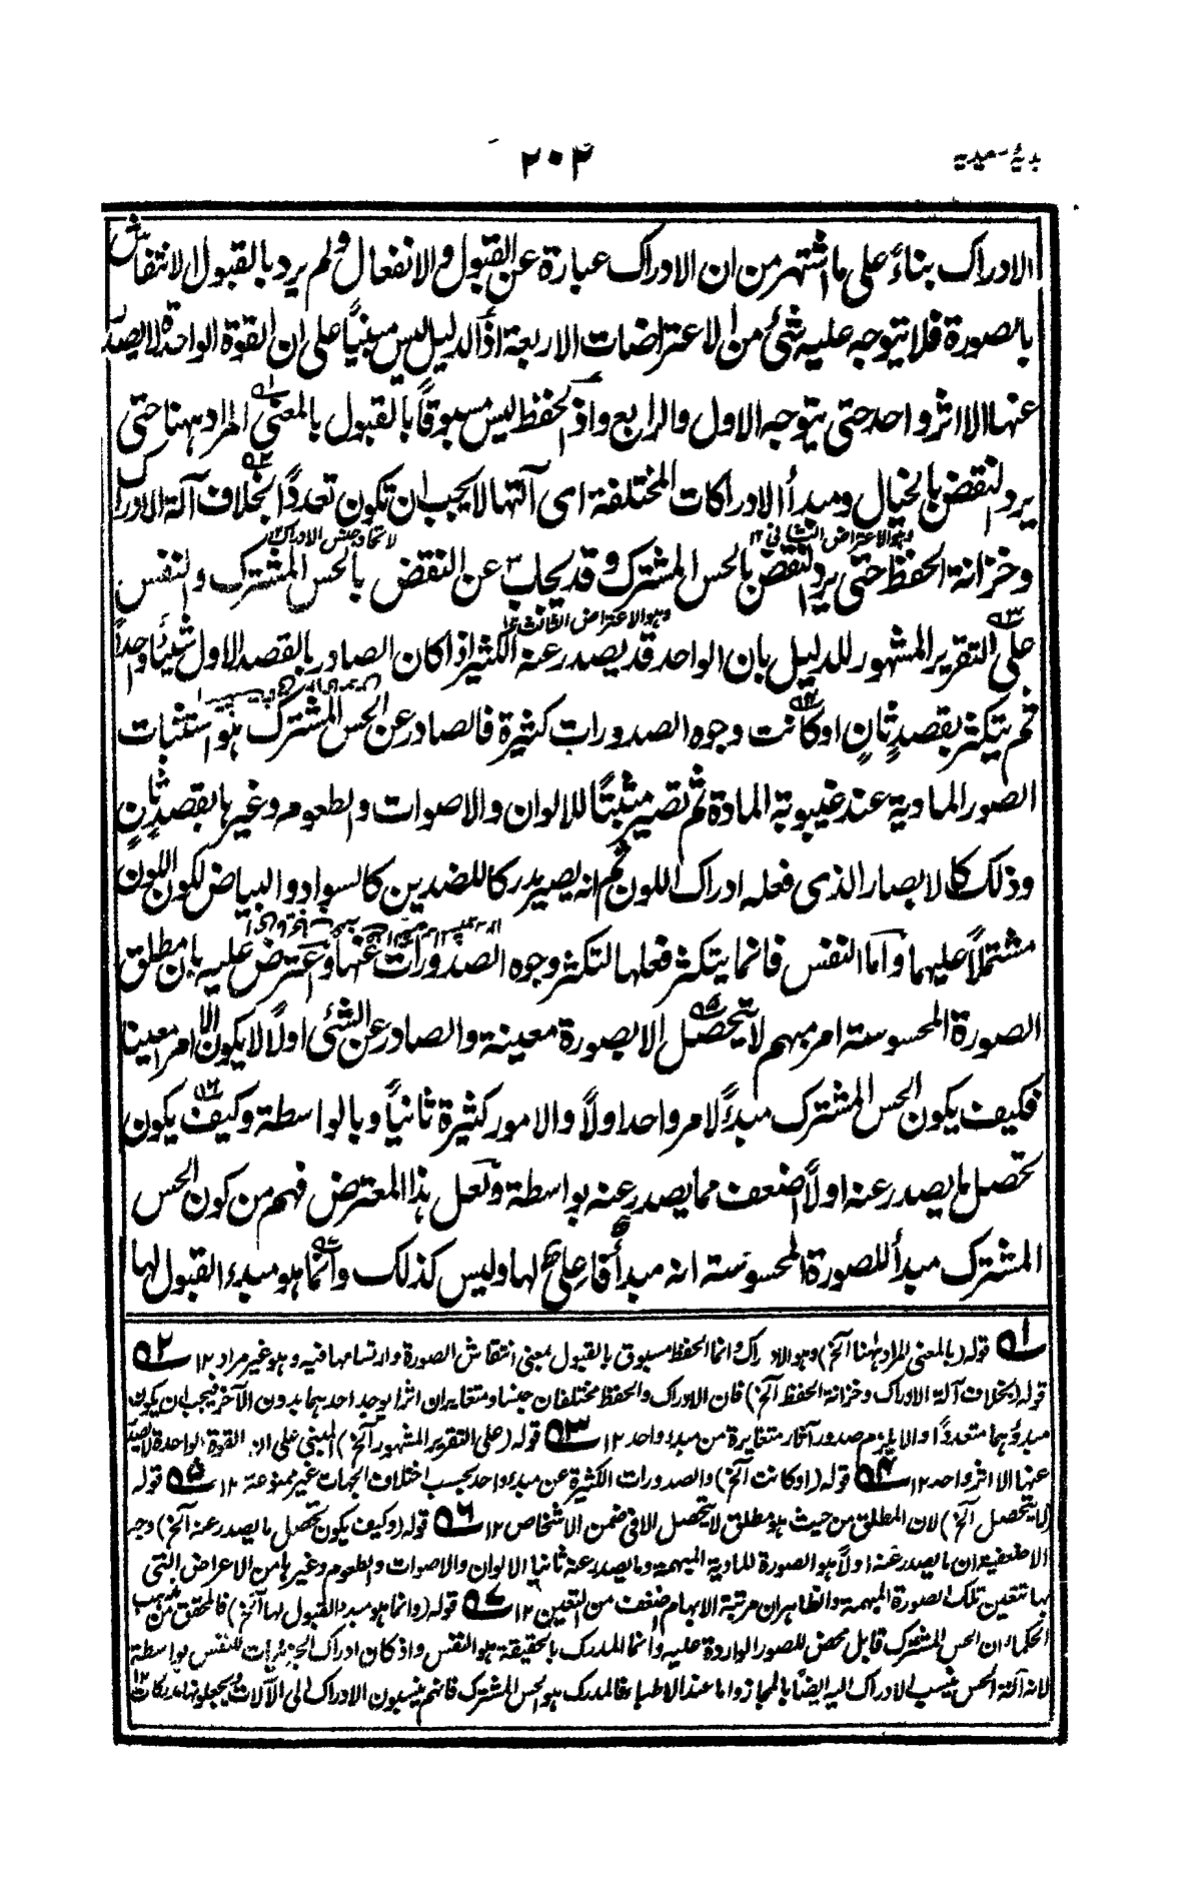 هدیۂ سعیدیہ
۲۰۳
الادراک بناءً علی ما اشتهر من ان الادراک عبارة عن القبول والانفعال ولم یرد بالقبول الانتقاش
بالصورة فلا یتوجه علیه شئ من الاعتراضات الاربعة اذ الدلیل لیس مبنیاً علی ان القوة الواحدة لا یصدر
عنها الا اثر واحد حتی یتوجه الاول والرابع واذ الحفظ لیس مسبوقاً بالقبول بالمعنی المراد ههنا حتی
یرد النقض بالخیال ومبدأ الادراکات المختلفة ای آلتها لا یجب ان تکون تعدداً بخلاف آلة الادراک
وهو الاعتراض الثانی ۱۲
لاتحاد جنس الادراک ۱۲
وخزانة الحفظ حتی یرد النقض بالحس المشترک وقد یجاب عن النقض بالحس المشترک والنفس
وهو الاعتراض الثالث ۱۲
علی التقریر المشهور للدلیل بان الواحد قد یصدر عنه الکثیر اذا کان الصادر بالقصد الاول شیئاً واحداً
ثم یتکثر بقصدٍ ثانٍ او کانت وجوه الصدورات کثیرة فالصادر عن الحس المشترک هو استثبات
الصور المادیة عند غیبوبة المادة ثم تصیر مثبتاً للالوان والاصوات والطعوم وغیرها بقصدٍ ثانٍ
وذلک کالابصار الذی فعله ادراک اللون ثم انه یصیر مدرکا للضدین کالسواد والبیاض لکون اللون
مشتملاً علیهما واما النفس فانما یتکثر فعلها لتکثر وجوه الصدورات عنها واعترض علیه بان مطلق
الصورة المحسوسة امر مبهم لا یتحصل الا بصورة معینة والصادر عن الشئ اولاً لا یکون الا امر معینا
فکیف یکون الحس المشترک مبدءً لامر واحد اولاً والامور کثیرة ثانیاً وبالواسطة وکیف یکون
تحصل ما یصدر عنه اولاً اضعف مما یصدر عنه بواسطة ولعل هذا المعترض فهم من کون الحس
المشترک مبدأ للصورة المحسوسة انه مبدأ فاعلی لها ولیس کذلک وانما هو مبدء القبول لها
۱ قوله (بالمعنی المراد ههنا آلخ) وهو الادراک وانما الحفظ مسبوق بالقبول بمعنی انتقاش الصورة وارتسامها فیه وهو غیر مراد ۱۲ ۲
قوله (بخلاف آلة الادراک وخزانة الحفظ آلخ) فان الادراک والحفظ مختلفان جنسا ومتغایران اثرا یوجد احدهما بدون الآخر فیجب ان یکون
مبدؤهما متعدداً والا یلزم صدور آثار متغایرة من مبدء واحد ۱۲ ۳ قوله (علی التقریر المشهور آلخ) المبنی علی ان القوة الواحدة لا یصدر
عنها الا اثر واحد ۱۲ ۴ قوله (او کانت آلخ) والصدورات الکثیرة عن مبدء واحد بحسب اختلاف الجهات غیر ممنوعة ۱۲ ۵ قوله
(لا یتحصل آلخ) لان المطلق من حیث هو مطلق لا یتحصل الا فی ضمن الاشخاص ۱۲ ۶ قوله (وکیف یکون تحصل ما یصدر عنه آلخ) وجه
الاضعفیة ان ما یصدر عنه اولاً هو الصورة المادیة المبهمة وما یصدر عنه ثانیا الالوان والاصوات والطعوم وغیرها من الاعراض التی
بها تتعین تلک الصورة المبهمة والظاهر ان مرتبة الابهام اضعف من التعین ۱۲ ۷ قوله (وانما هو مبدء القبول لها آلخ) فالمحقق من مذهب
الحکماء ان الحس المشترک قابل محض للصور الواردة علیه وانما المدرک بالحقیقة هو النفس واذ کان ادراک الجزئیات للنفس بواسطة
لانه آلة الحس ینسب الادراک الیه ایضا بالمجاز واما عند الاطباء فالمدرک هو الحس المشترک فانهم ینسبون الادراک الی الآلات ویجعلونها مدرکات ۱۲